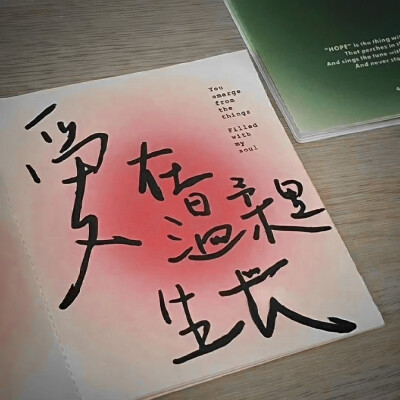 You
emerge
from
the
things
Filled
with
my
soul
爱
在
温柔里
生长
"HOPE" is the thing wi
That perches in t
And sings the tune with
And never sto